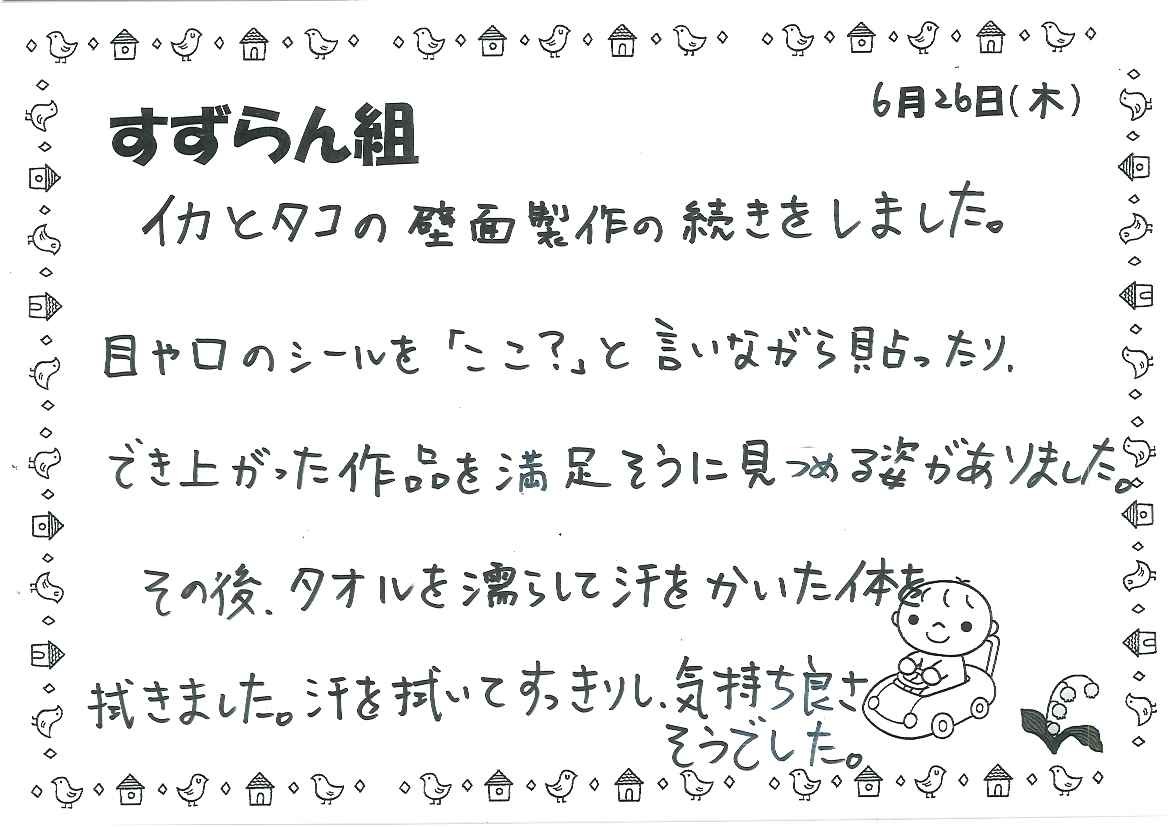 6月26日(木)
すずらん組
イカとタコの壁面製作の続きをしました。
目や口のシールを「ここ?」と言いながら貼ったり、
でき上がった作品を満足そうに見つめる姿がありました。
その後、タオルを濡らして汗をかいた体を
拭きました。汗を拭いてすっきりし、気持ち良さ
そうでした。